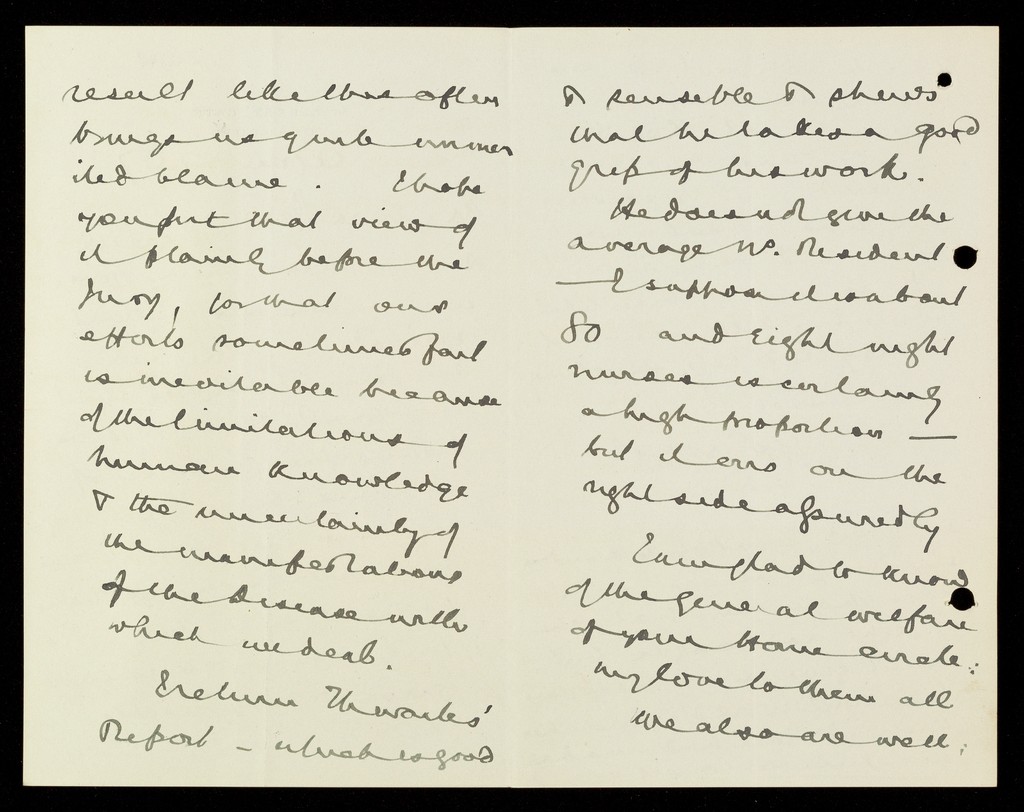 result like this often
brings us quite unmer
ited blame. I hope
you put that view of
it plainly before the
Jury, for that our
efforts sometimes fail
is inevitable because
of the limitations of
human knowledge
& the uncertainty of
the manifestations
of the disease with
which we deal.
I return Thwaites'
Report – which is good
& sensible & shews
that he takes a good
grip of his work.
He does not give the
average No. Resident
— I suppose it is about
80 and Eight night
nurses is certainly
a high proportion —
but it errs on the
right side assuredly
I am glad to know
of the general welfare
of your Home circle:
my love to them all
we also are well;